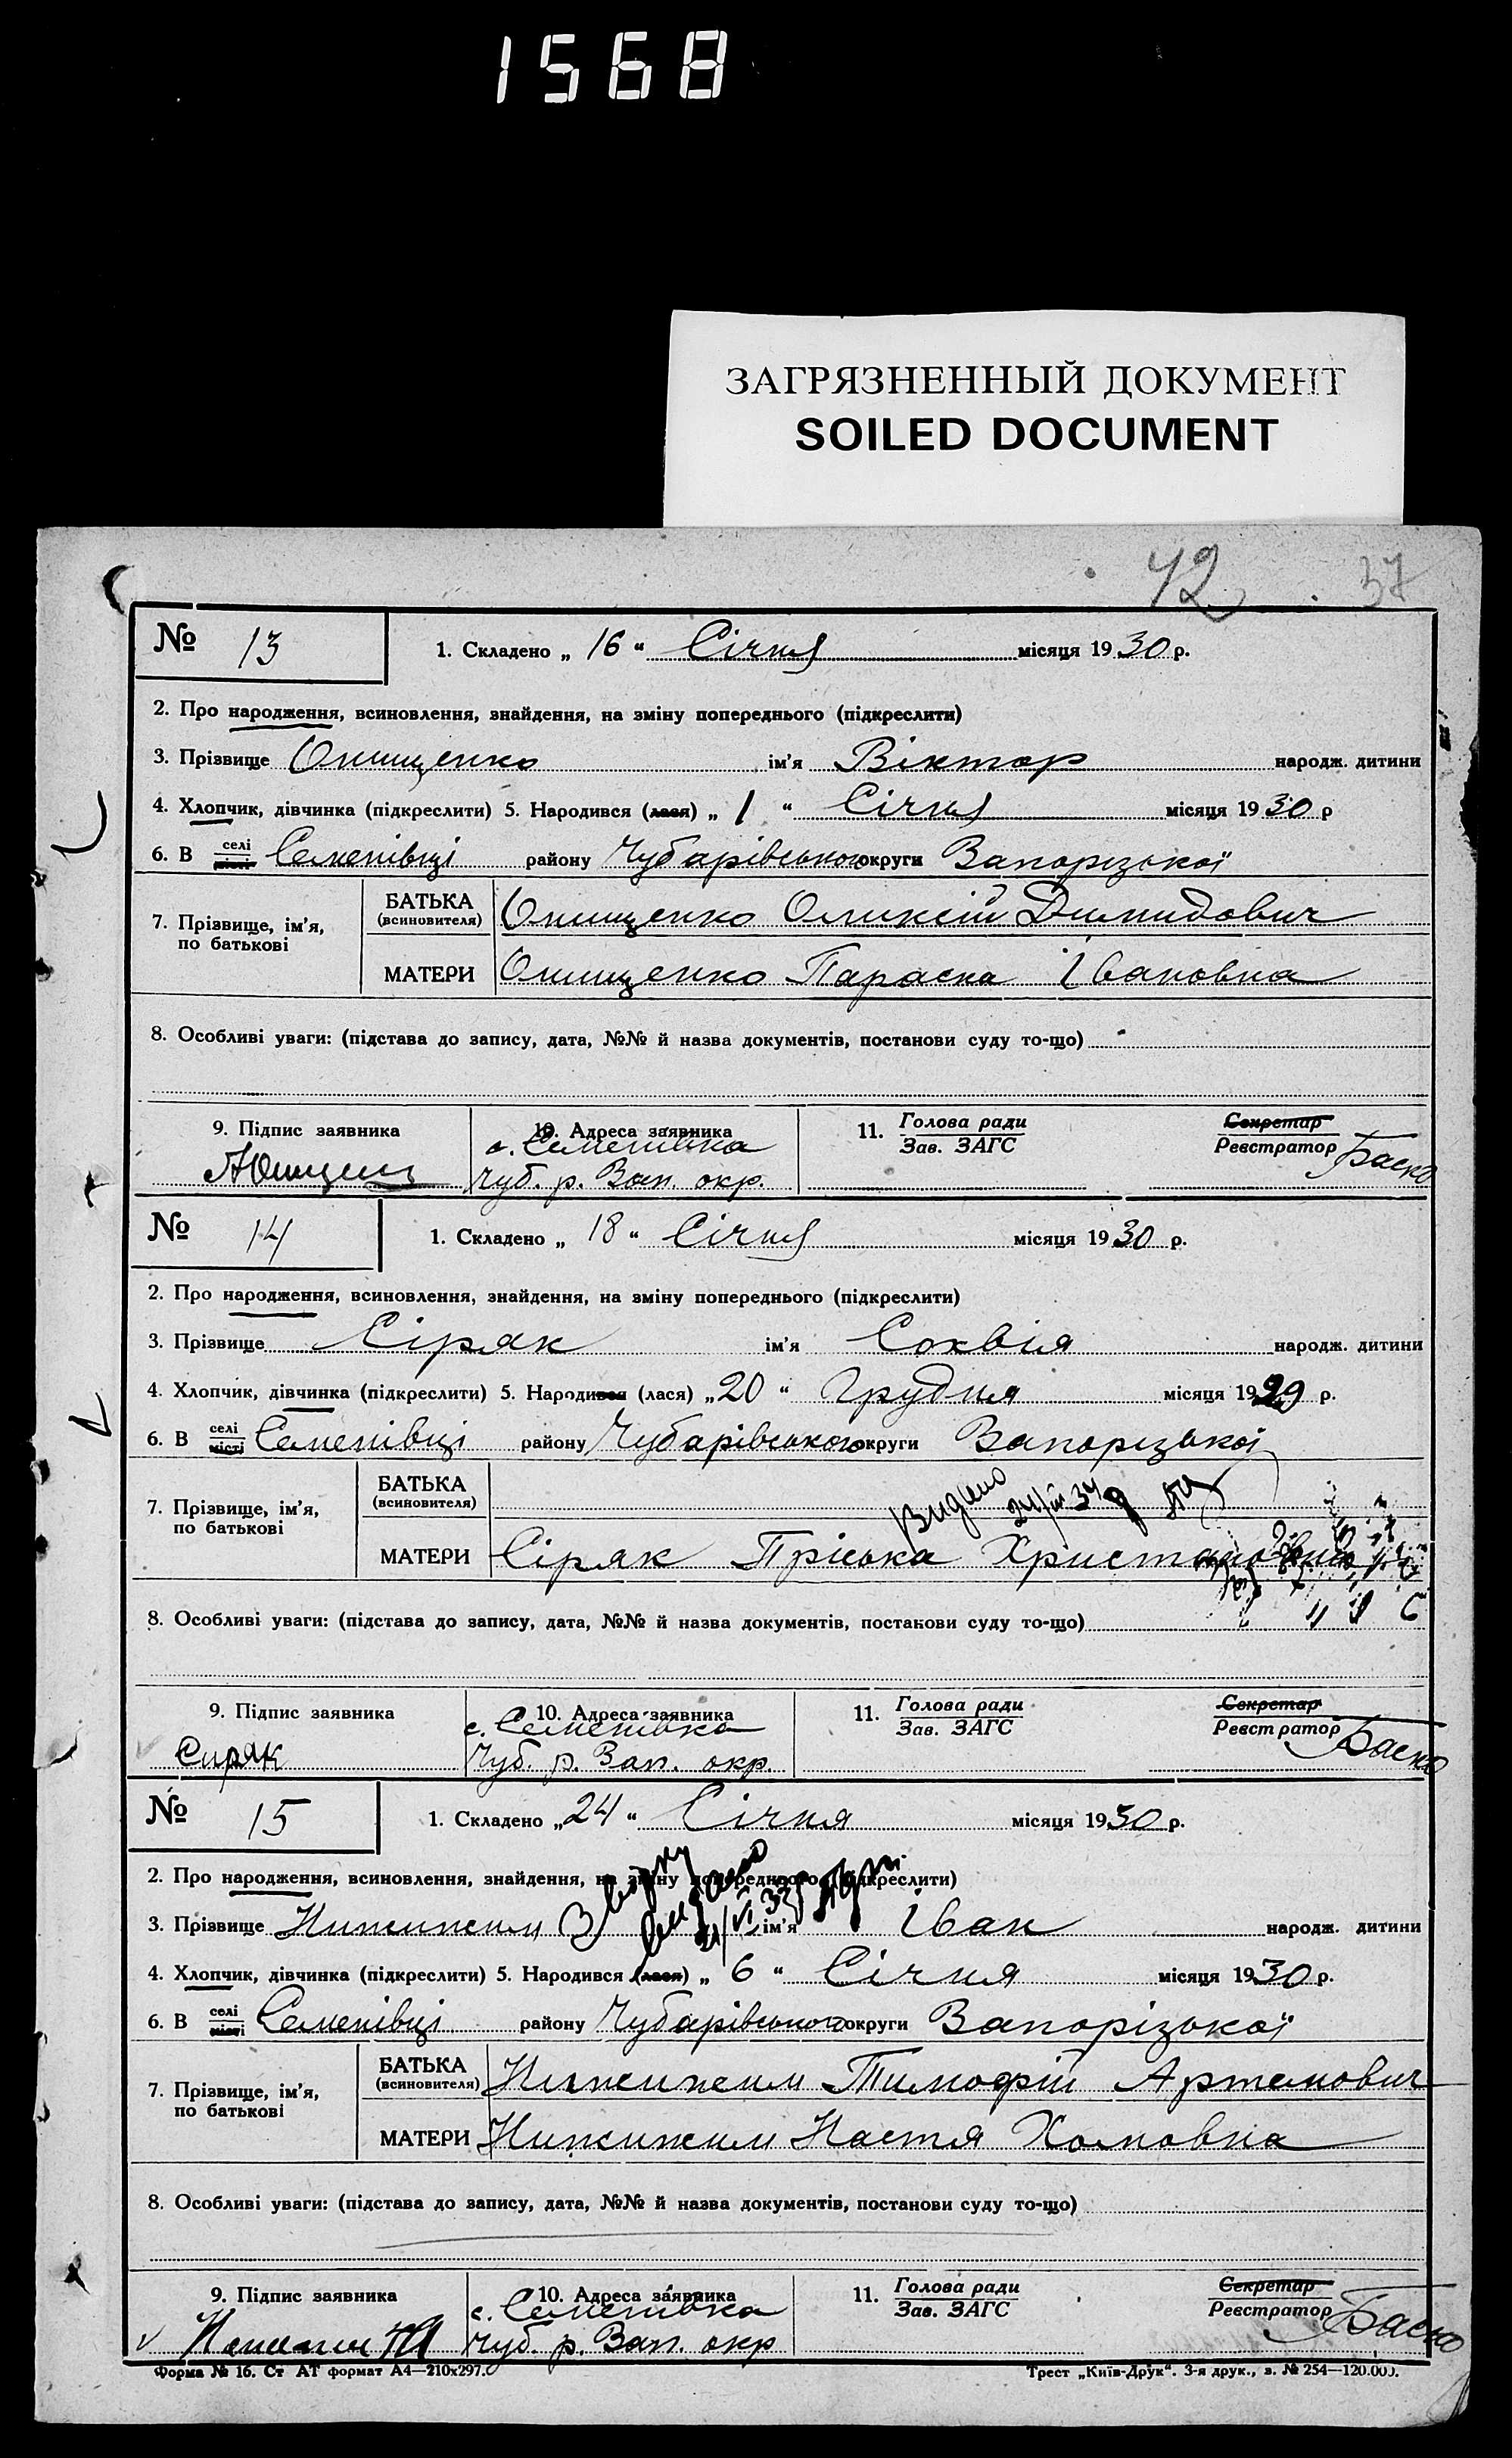 1568
ЗАГРЯЗНЕННЫЙ ДОКУМЕНТ
SOILED DOCUMENT
42 37
№ 13 1. Складено „ 16 “ Січня місяця 1930 р.
2. Про народження, всиновлення, знайдення, на зміну попереднього (підкреслити)
3. Прізвище Онищенко ім’я Віктор народж. дитини
4. Хлопчик, дівчинка (підкреслити) 5. Народився (лася) „ 1 “ Січня місяця 1930 р
6. В селі місті Семенівці району Чубарівського округи Запорізької
7. Прізвище, ім’я, по батькові
БАТЬКА (всиновителя) Онищенко Олексій Димидович
МАТЕРИ Онищенко Параска Івановна
8. Особливі уваги: (підстава до запису, дата, №№ й назва документів, постанови суду то-що)
9. Підпис заявника 10. Адреса заявника 11. Голова ради Зав. ЗАГС Секретар Реєстратор Баско
с. Семенівка
Чуб. р. Зап. окр.
№ 14 1. Складено „ 18 “ Січня місяця 1930 р.
2. Про народження, всиновлення, знайдення, на зміну попереднього (підкреслити)
3. Прізвище Сіряк ім’я Сохвія народж. дитини
4. Хлопчик, дівчинка (підкреслити) 5. Народився (лася) „ 20 “ Грудня місяця 1929 р.
6. В селі місті Семенівці району Чубарівського округи Запорізької
7. Прізвище, ім’я, по батькові
БАТЬКА (всиновителя)
Видано
МАТЕРИ Сіряк Пріська
8. Особливі уваги: (підстава до запису, дата, №№ й назва документів, постанови суду то-що)
9. Підпис заявника 10. Адреса заявника 11. Голова ради Зав. ЗАГС Секретар Реєстратор Баско
Сиряк с. Семенівка
Чуб. р. Зап. окр.
№ 15 1. Складено „ 24 “ Січня місяця 1930 р.
2. Про народження, всиновлення, знайдення, на зміну попереднього (підкреслити)
3. Прізвище ім’я Іван народж. дитини
4. Хлопчик, дівчинка (підкреслити) 5. Народився (лася) „ 6 “ Січня місяця 1930 р.
6. В селі місті Семенівці району Чубарівського округи Запорізької
7. Прізвище, ім’я, по батькові
БАТЬКА (всиновителя) Тимофій Артемович
МАТЕРИ Настя Хомовна
8. Особливі уваги: (підстава до запису, дата, №№ й назва документів, постанови суду то-що)
9. Підпис заявника 10. Адреса заявника 11. Голова ради Зав. ЗАГС Секретар Реєстратор Баско
с. Семенівка
Чуб. р. Зап. окр
Форма № 16. Ст АТ формат А4—210х297. Трест „Київ-Друк“. 3-я друк., з. № 254—120.000.